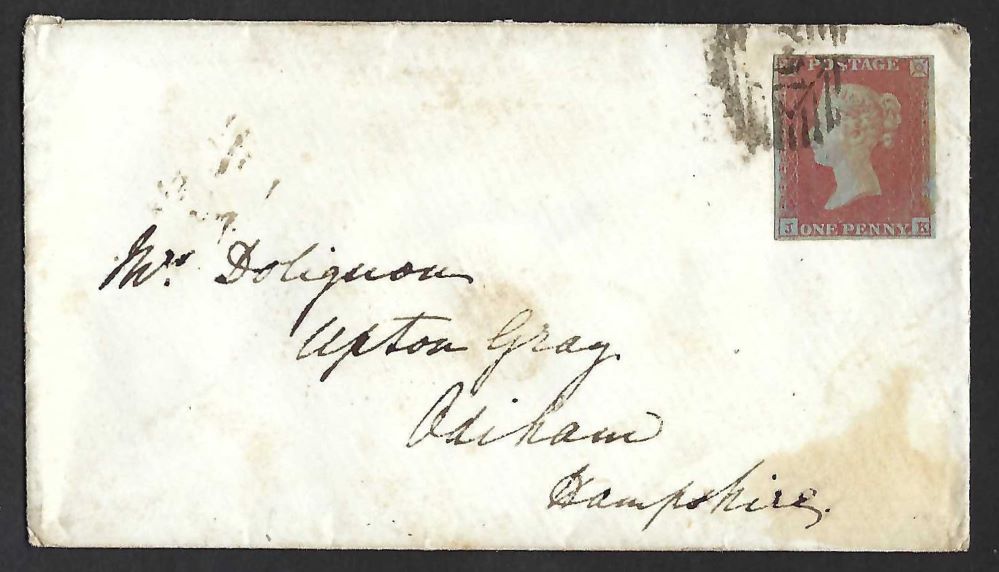 POSTAGE
J ONE PENNY K
Mrs Dolignon
Upton Gray
Odiham
Hampshire.